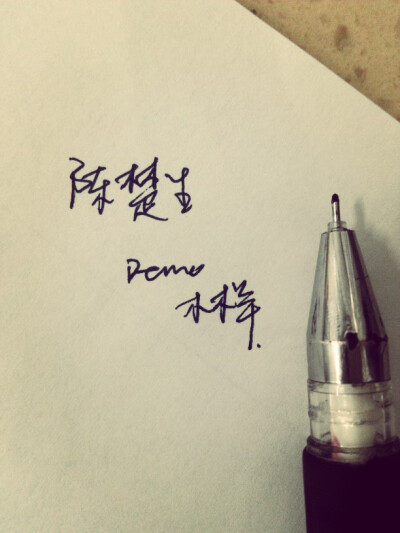 陈楚生
Demo
木样.